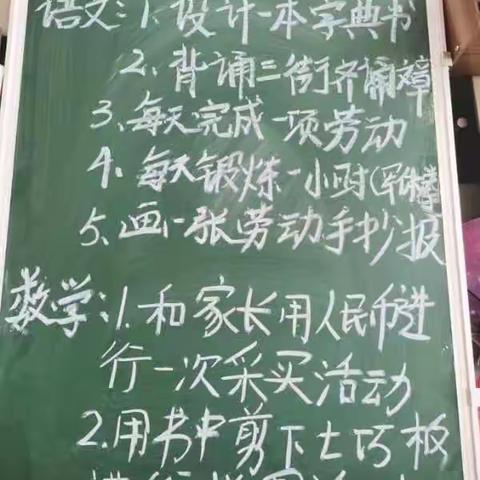 语文:1.设计一本字典书
2、背诵三街齐诵章
3、每天完成一项劳动
4、每天锻炼一小时(军体拳
5、画一张劳动手抄报
数学:1.和家长用人民币进
行一次采买活动
2.用书中剪下七巧板